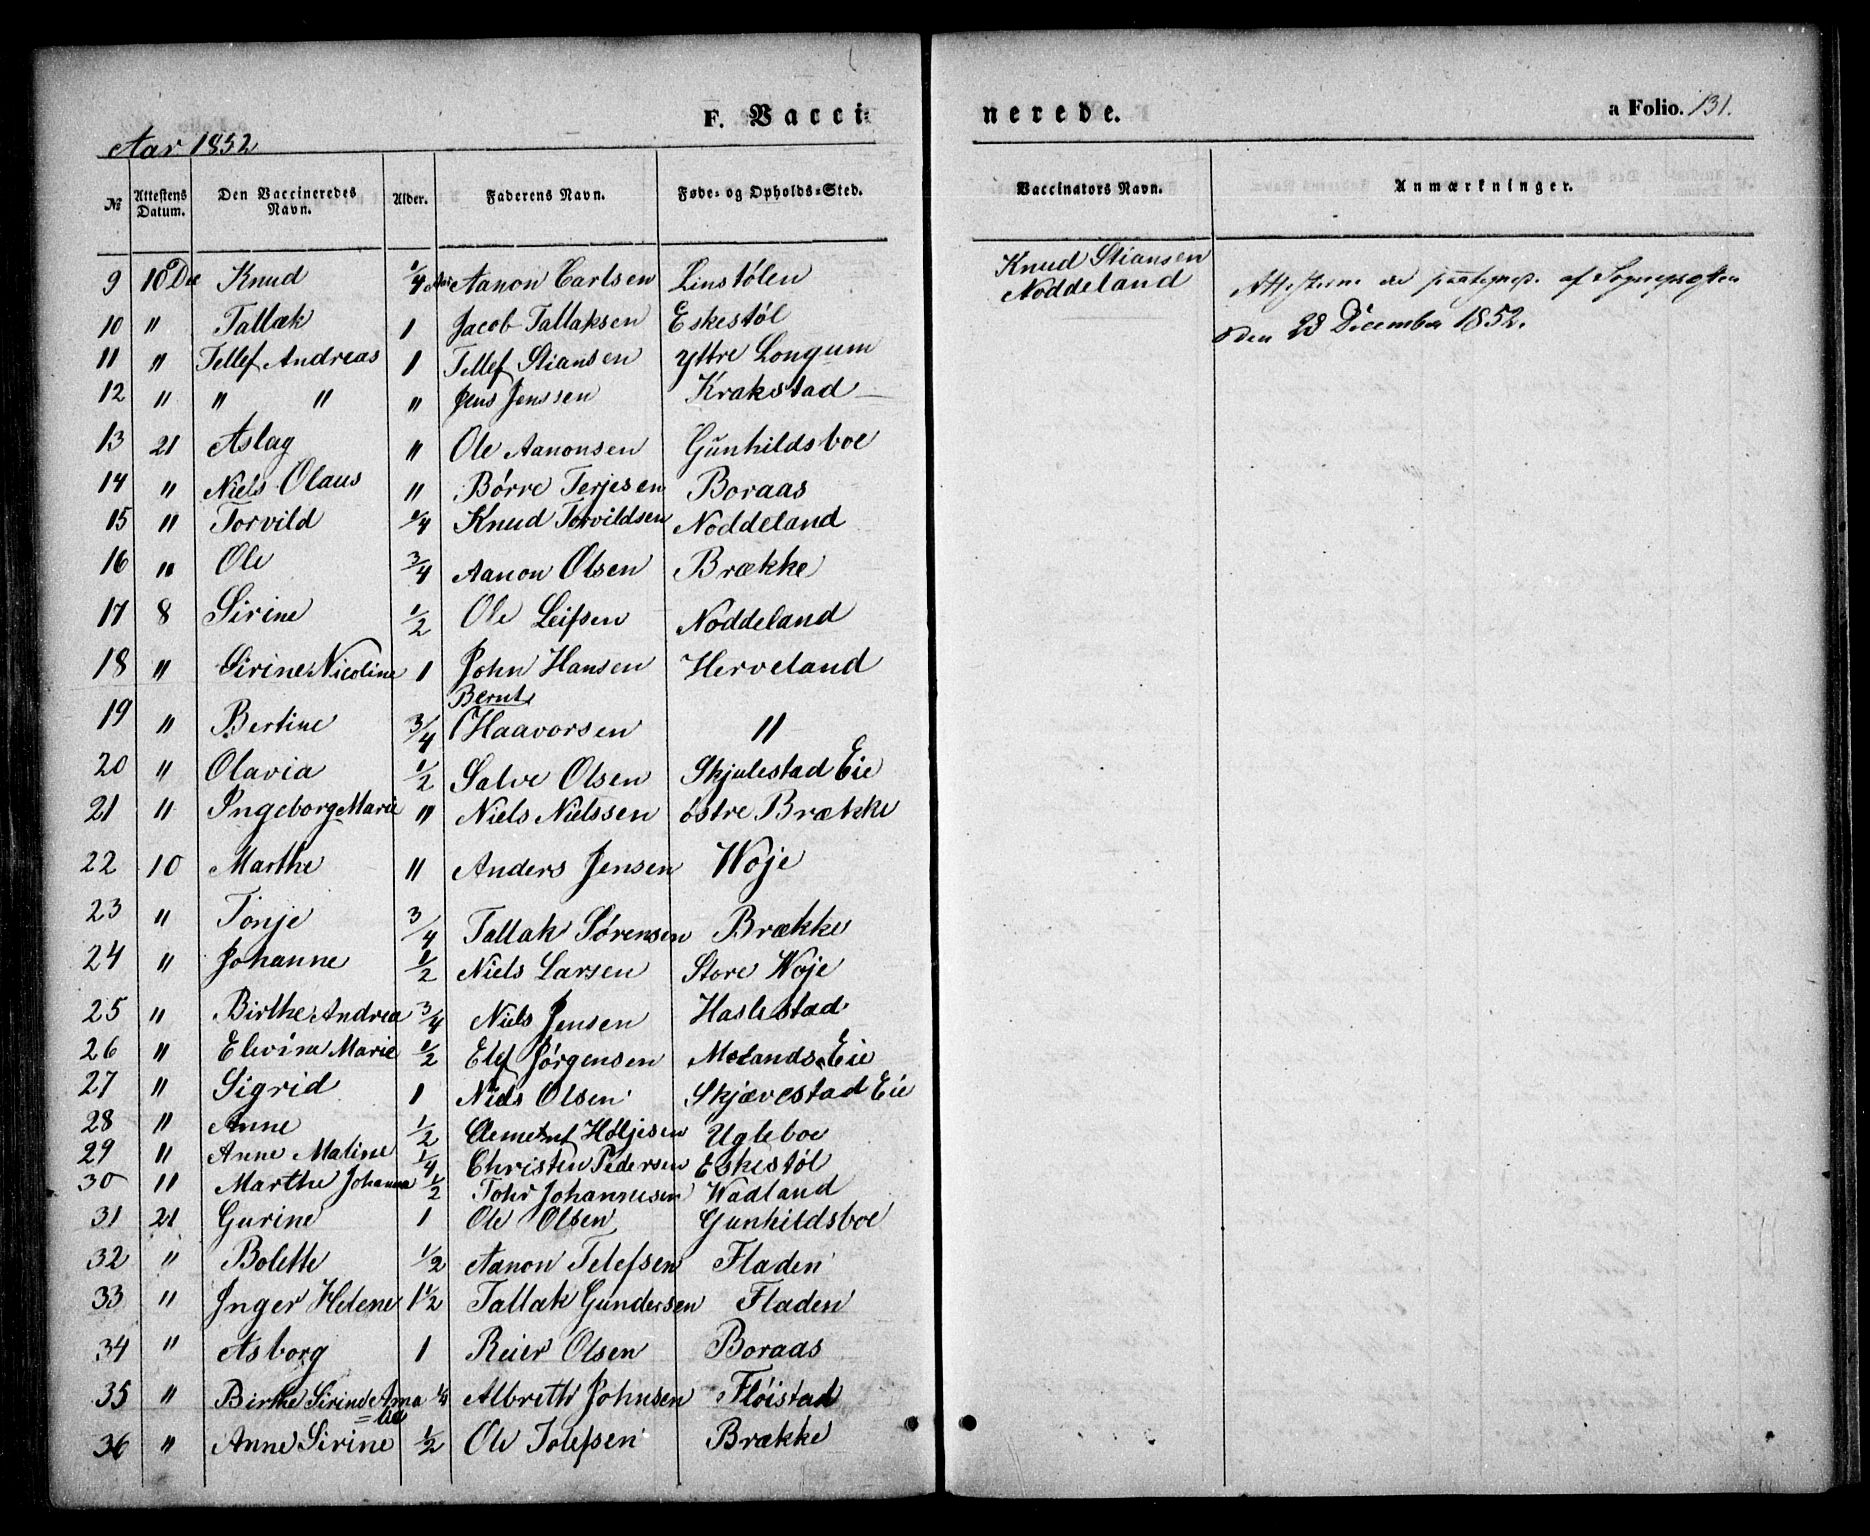 F. Vacci-
nerede.
a Folio. 131.
Aar 1852
№ Attestens Datum. Den Vaccineredes Navn. Alder. Faderens Navn. Føde- og Opholds-Sted. Vaccinators Navn. Anmærkninger.
9 10 Dec Knud 1/4 Aar Aanon Carlsen Linstølen Knud Stiansen Noddeland Attesterne af Sognepresten
10 " Tallak 1 Jacob Tallaksen Eskestøl den 28 December 1852.
11 " Tellef Andreas 1 Tellef Stiansen Yttre Longum
12 " " " " Jens Jenssen Krakstad
13 21 Aslag " Ole Aanonsen Gunhildsboe
14 " Niels Olaus " Børre Terjesen Boraas
15 " Torvild 1/4 Knud Torvildsen Noddeland
16 " Ole 3/4 Aanon Olsen Brække
17 8 Sirine 1/2 Ole Leifsen Noddeland
18 " Sirine Nicoline 1 John Hansen Herveland
19 " Bertine 3/4 Bernt Haavorsen "
20 " Olavia 1/2 Salve Olsen Skjulestad Eie
21 " Ingeborg Marie " Niels Nielssen østre Brække
22 10 Marthe " Anders Jensen Woje
23 " Tonje 3/4 Tallak Sørensen Brække
24 " Johanne 1/2 Niels Larsen Store Woje
25 " Birthe Andrea 3/4 Niels Jensen Haslestad
26 " Elevine Marie 1/2 Elef Jørgensen Molands Eie
27 " Sigrid 1 Niels Olsen Skjævestad Eie
28 " Anne 1/2 Clement Holjesen Ugleboe
29 " Anne Maline 1/4 Christen Pedersen Eskestøl
30 " Marthe Johanna 1/2 Tohr Johannesen Wadland
31 21 Gurine 1 Ole Olsen Gunhildsboe
32 " Bolette 1/2 Aanon Telefsen Fladen
33 " Inger Helene 1 1/2 Tallak Gundersen Fladen
34 " Asborg 1 Reier Olsen Boraas
35 " Birthe Sirine Ama=lia 1/4 Albreth Johnsen Fløistad
36 " Anne Sirine 1/2 Ole Tolefsen Brække